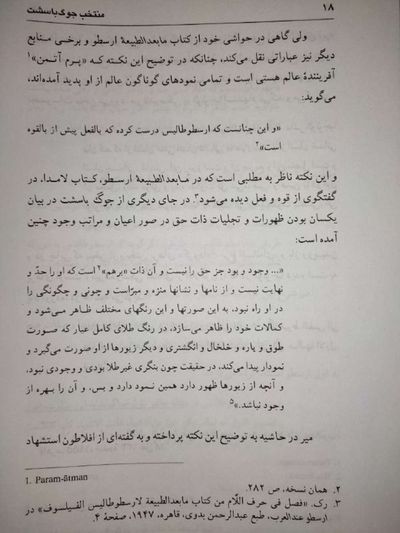 ۱۸
منتخب جوگ باسشت
ولی گاهی در حواشی خود از کتاب مابعدالطبیعهٔ ارسطو و برخی منابع
دیگر نیز عباراتی نقل می‌کند، چنانکه در توضیح این نکته که «پرم آتمن»۱
آفرینندهٔ عالم هستی است و تمامی نمودهای گوناگون عالم از او پدید آمده‌اند،
می‌گوید:
«و این چنانست که ارسطوطالیس درست کرده که بالفعل پیش از بالقوه
است»۲
و این نکته ناظر به مطلبی است که در مابعدالطبیعهٔ ارسطو، کتاب لامدا، در
گفتگوی از قوه و فعل دیده می‌شود۳. در جای دیگری از جوگ باسشت در بیان
یکسان بودن ظهورات و تجلیات ذات حق در صور اعیان و مراتب وجود چنین
آمده است:
«... وجود و بود جز حق را نیست و آن ذات «برهم»۴ است که او را حدّ و
نهایت نیست و از نامها و نشانها منزه و مبرّاست و چونی و چگونگی را
در او راه نبود. به این صورتها و این رنگهای مختلف ظاهر می‌شود و
کمالات خود را ظاهر می‌سازد، در رنگ طلای کامل عیار که صورت
طوق و یاره و خلخال و انگشتری و دیگر زیورها از او صورت می‌گیرد و
نمودار پیدا می‌کند. در حقیقت چون بنگری غیرطلا بودی و وجودی نبود،
و آنچه از زیورها ظهور دارد همین نمود دارد و بس، و آن را بهره از
وجود نباشد.»۵
میر در حاشیه به توضیح این نکته پرداخته و به گفته‌ای از افلاطون استشهاد
1. Param-ātman
۲. همان نسخه، ص ۲۸۲.
۳. رک. «فصل فی حرف اللّام من کتاب مابعدالطبیعة لارسطوطالیس الفیلسوف» در
ارسطو عندالعرب، طبع عبدالرحمن بدوی، قاهره، ۱۹۴۷، صفحهٔ ۴.